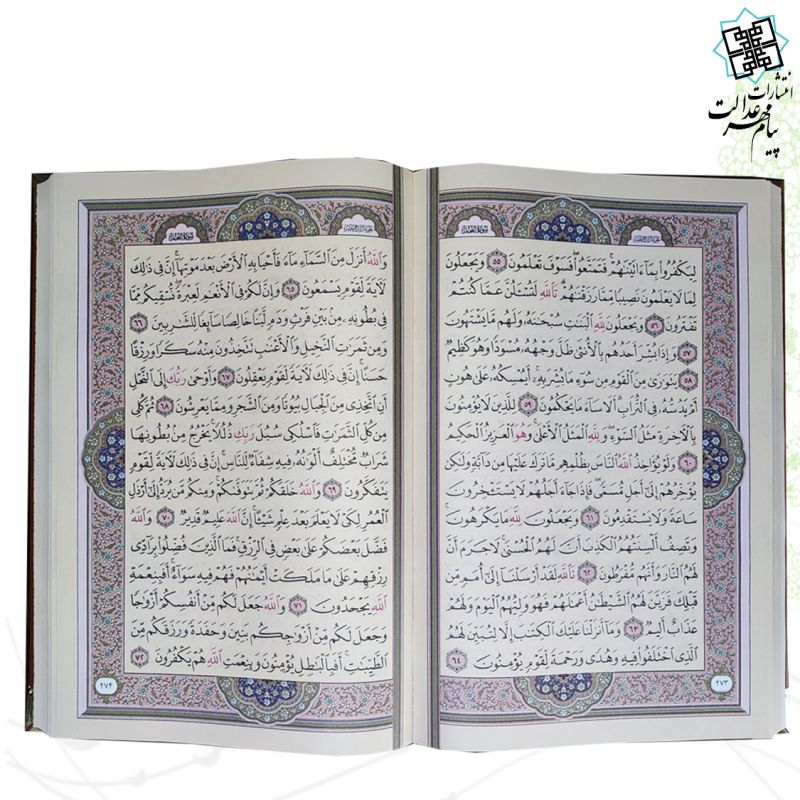 انتشارات
پیام مهر عدالت
لِيَكْفُرُوا۟ بِمَآ ءَاتَيْنَٰهُمْ ۚ فَتَمَتَّعُوا۟ ۖ فَسَوْفَ تَعْلَمُونَ ٥٥ وَيَجْعَلُونَ
لِمَا لَا يَعْلَمُونَ نَصِيبًا مِّمَّا رَزَقْنَٰهُمْ ۗ تَٱللَّهِ لَتُسْـَٔلُنَّ عَمَّا كُنتُمْ
تَفْتَرُونَ ٥٦ وَيَجْعَلُونَ لِلَّهِ ٱلْبَنَٰتِ سُبْحَٰنَهُۥ ۙ وَلَهُم مَّا يَشْتَهُونَ
٥٧ وَإِذَا بُشِّرَ أَحَدُهُم بِٱلْأُنثَىٰ ظَلَّ وَجْهُهُۥ مُسْوَدًّا وَهُوَ كَظِيمٌ
٥٨ يَتَوَٰرَىٰ مِنَ ٱلْقَوْمِ مِن سُوٓءِ مَا بُشِّرَ بِهِۦٓ ۚ أَيُمْسِكُهُۥ عَلَىٰ هُونٍ
أَمْ يَدُسُّهُۥ فِى ٱلتُّرَابِ ۗ أَلَا سَآءَ مَا يَحْكُمُونَ ٥٩ لِلَّذِينَ لَا يُؤْمِنُونَ
بِٱلْءَاخِرَةِ مَثَلُ ٱلسَّوْءِ ۖ وَلِلَّهِ ٱلْمَثَلُ ٱلْأَعْلَىٰ ۚ وَهُوَ ٱلْعَزِيزُ ٱلْحَكِيمُ
٦٠ وَلَوْ يُؤَاخِذُ ٱللَّهُ ٱلنَّاسَ بِظُلْمِهِم مَّا تَرَكَ عَلَيْهَا مِن دَآبَّةٍ وَلَٰكِن
يُؤَخِّرُهُمْ إِلَىٰٓ أَجَلٍ مُّسَمًّى ۖ فَإِذَا جَآءَ أَجَلُهُمْ لَا يَسْتَـْٔخِرُونَ
سَاعَةً ۖ وَلَا يَسْتَقْدِمُونَ ٦١ وَيَجْعَلُونَ لِلَّهِ مَا يَكْرَهُونَ ۚ
وَتَصِفُ أَلْسِنَتُهُمُ ٱلْكَذِبَ أَنَّ لَهُمُ ٱلْحُسْنَىٰ ۖ لَا جَرَمَ أَنَّ
لَهُمُ ٱلنَّارَ وَأَنَّهُم مُّفْرَطُونَ ٦٢ تَٱللَّهِ لَقَدْ أَرْسَلْنَآ إِلَىٰٓ أُمَمٍ مِّن
قَبْلِكَ فَزَيَّنَ لَهُمُ ٱلشَّيْطَٰنُ أَعْمَٰلَهُمْ فَهُوَ وَلِيُّهُمُ ٱلْيَوْمَ وَلَهُمْ
عَذَابٌ أَلِيمٌ ٦٣ وَمَآ أَنزَلْنَا عَلَيْكَ ٱلْكِتَٰبَ إِلَّا لِتُبَيِّنَ لَهُمُ
ٱلَّذِى ٱخْتَلَفُوا۟ فِيهِ ۙ وَهُدًى وَرَحْمَةً لِّقَوْمٍ يُؤْمِنُونَ ٦٤
٢٧٣
وَٱللَّهُ أَنزَلَ مِنَ ٱلسَّمَآءِ مَآءً فَأَحْيَا بِهِ ٱلْأَرْضَ بَعْدَ مَوْتِهَآ ۚ إِنَّ فِى ذَٰلِكَ
لَءَايَةً لِّقَوْمٍ يَسْمَعُونَ ٦٥ وَإِنَّ لَكُمْ فِى ٱلْأَنْعَٰمِ لَعِبْرَةً ۖ نُّسْقِيكُم مِّمَّا
فِى بُطُونِهِۦ مِنۢ بَيْنِ فَرْثٍ وَدَمٍ لَّبَنًا خَالِصًا سَآئِغًا لِّلشَّٰرِبِينَ ٦٦
وَمِن ثَمَرَٰتِ ٱلنَّخِيلِ وَٱلْأَعْنَٰبِ تَتَّخِذُونَ مِنْهُ سَكَرًا وَرِزْقًا
حَسَنًا ۗ إِنَّ فِى ذَٰلِكَ لَءَايَةً لِّقَوْمٍ يَعْقِلُونَ ٦٧ وَأَوْحَىٰ رَبُّكَ إِلَى ٱلنَّحْلِ
أَنِ ٱتَّخِذِى مِنَ ٱلْجِبَالِ بُيُوتًا وَمِنَ ٱلشَّجَرِ وَمِمَّا يَعْرِشُونَ ٦٨ ثُمَّ كُلِى
مِن كُلِّ ٱلثَّمَرَٰتِ فَٱسْلُكِى سُبُلَ رَبِّكِ ذُلُلًا ۚ يَخْرُجُ مِنۢ بُطُونِهَا
شَرَابٌ مُّخْتَلِفٌ أَلْوَٰنُهُۥ فِيهِ شِفَآءٌ لِّلنَّاسِ ۗ إِنَّ فِى ذَٰلِكَ لَءَايَةً لِّقَوْمٍ
يَتَفَكَّرُونَ ٦٩ وَٱللَّهُ خَلَقَكُمْ ثُمَّ يَتَوَفَّىٰكُمْ ۚ وَمِنكُم مَّن يُرَدُّ إِلَىٰٓ أَرْذَلِ
ٱلْعُمُرِ لِكَىْ لَا يَعْلَمَ بَعْدَ عِلْمٍ شَيْـًٔا ۚ إِنَّ ٱللَّهَ عَلِيمٌ قَدِيرٌ ٧٠ وَٱللَّهُ
فَضَّلَ بَعْضَكُمْ عَلَىٰ بَعْضٍ فِى ٱلرِّزْقِ ۚ فَمَا ٱلَّذِينَ فُضِّلُوا۟ بِرَآدِّى
رِزْقِهِمْ عَلَىٰ مَا مَلَكَتْ أَيْمَٰنُهُمْ فَهُمْ فِيهِ سَوَآءٌ ۚ أَفَبِنِعْمَةِ
ٱللَّهِ يَجْحَدُونَ ٧١ وَٱللَّهُ جَعَلَ لَكُم مِّنْ أَنفُسِكُمْ أَزْوَٰجًا
وَجَعَلَ لَكُم مِّنْ أَزْوَٰجِكُم بَنِينَ وَحَفَدَةً وَرَزَقَكُم مِّنَ
ٱلطَّيِّبَٰتِ ۚ أَفَبِٱلْبَٰطِلِ يُؤْمِنُونَ وَبِنِعْمَتِ ٱللَّهِ هُمْ يَكْفُرُونَ ٧٢
٢٧٤